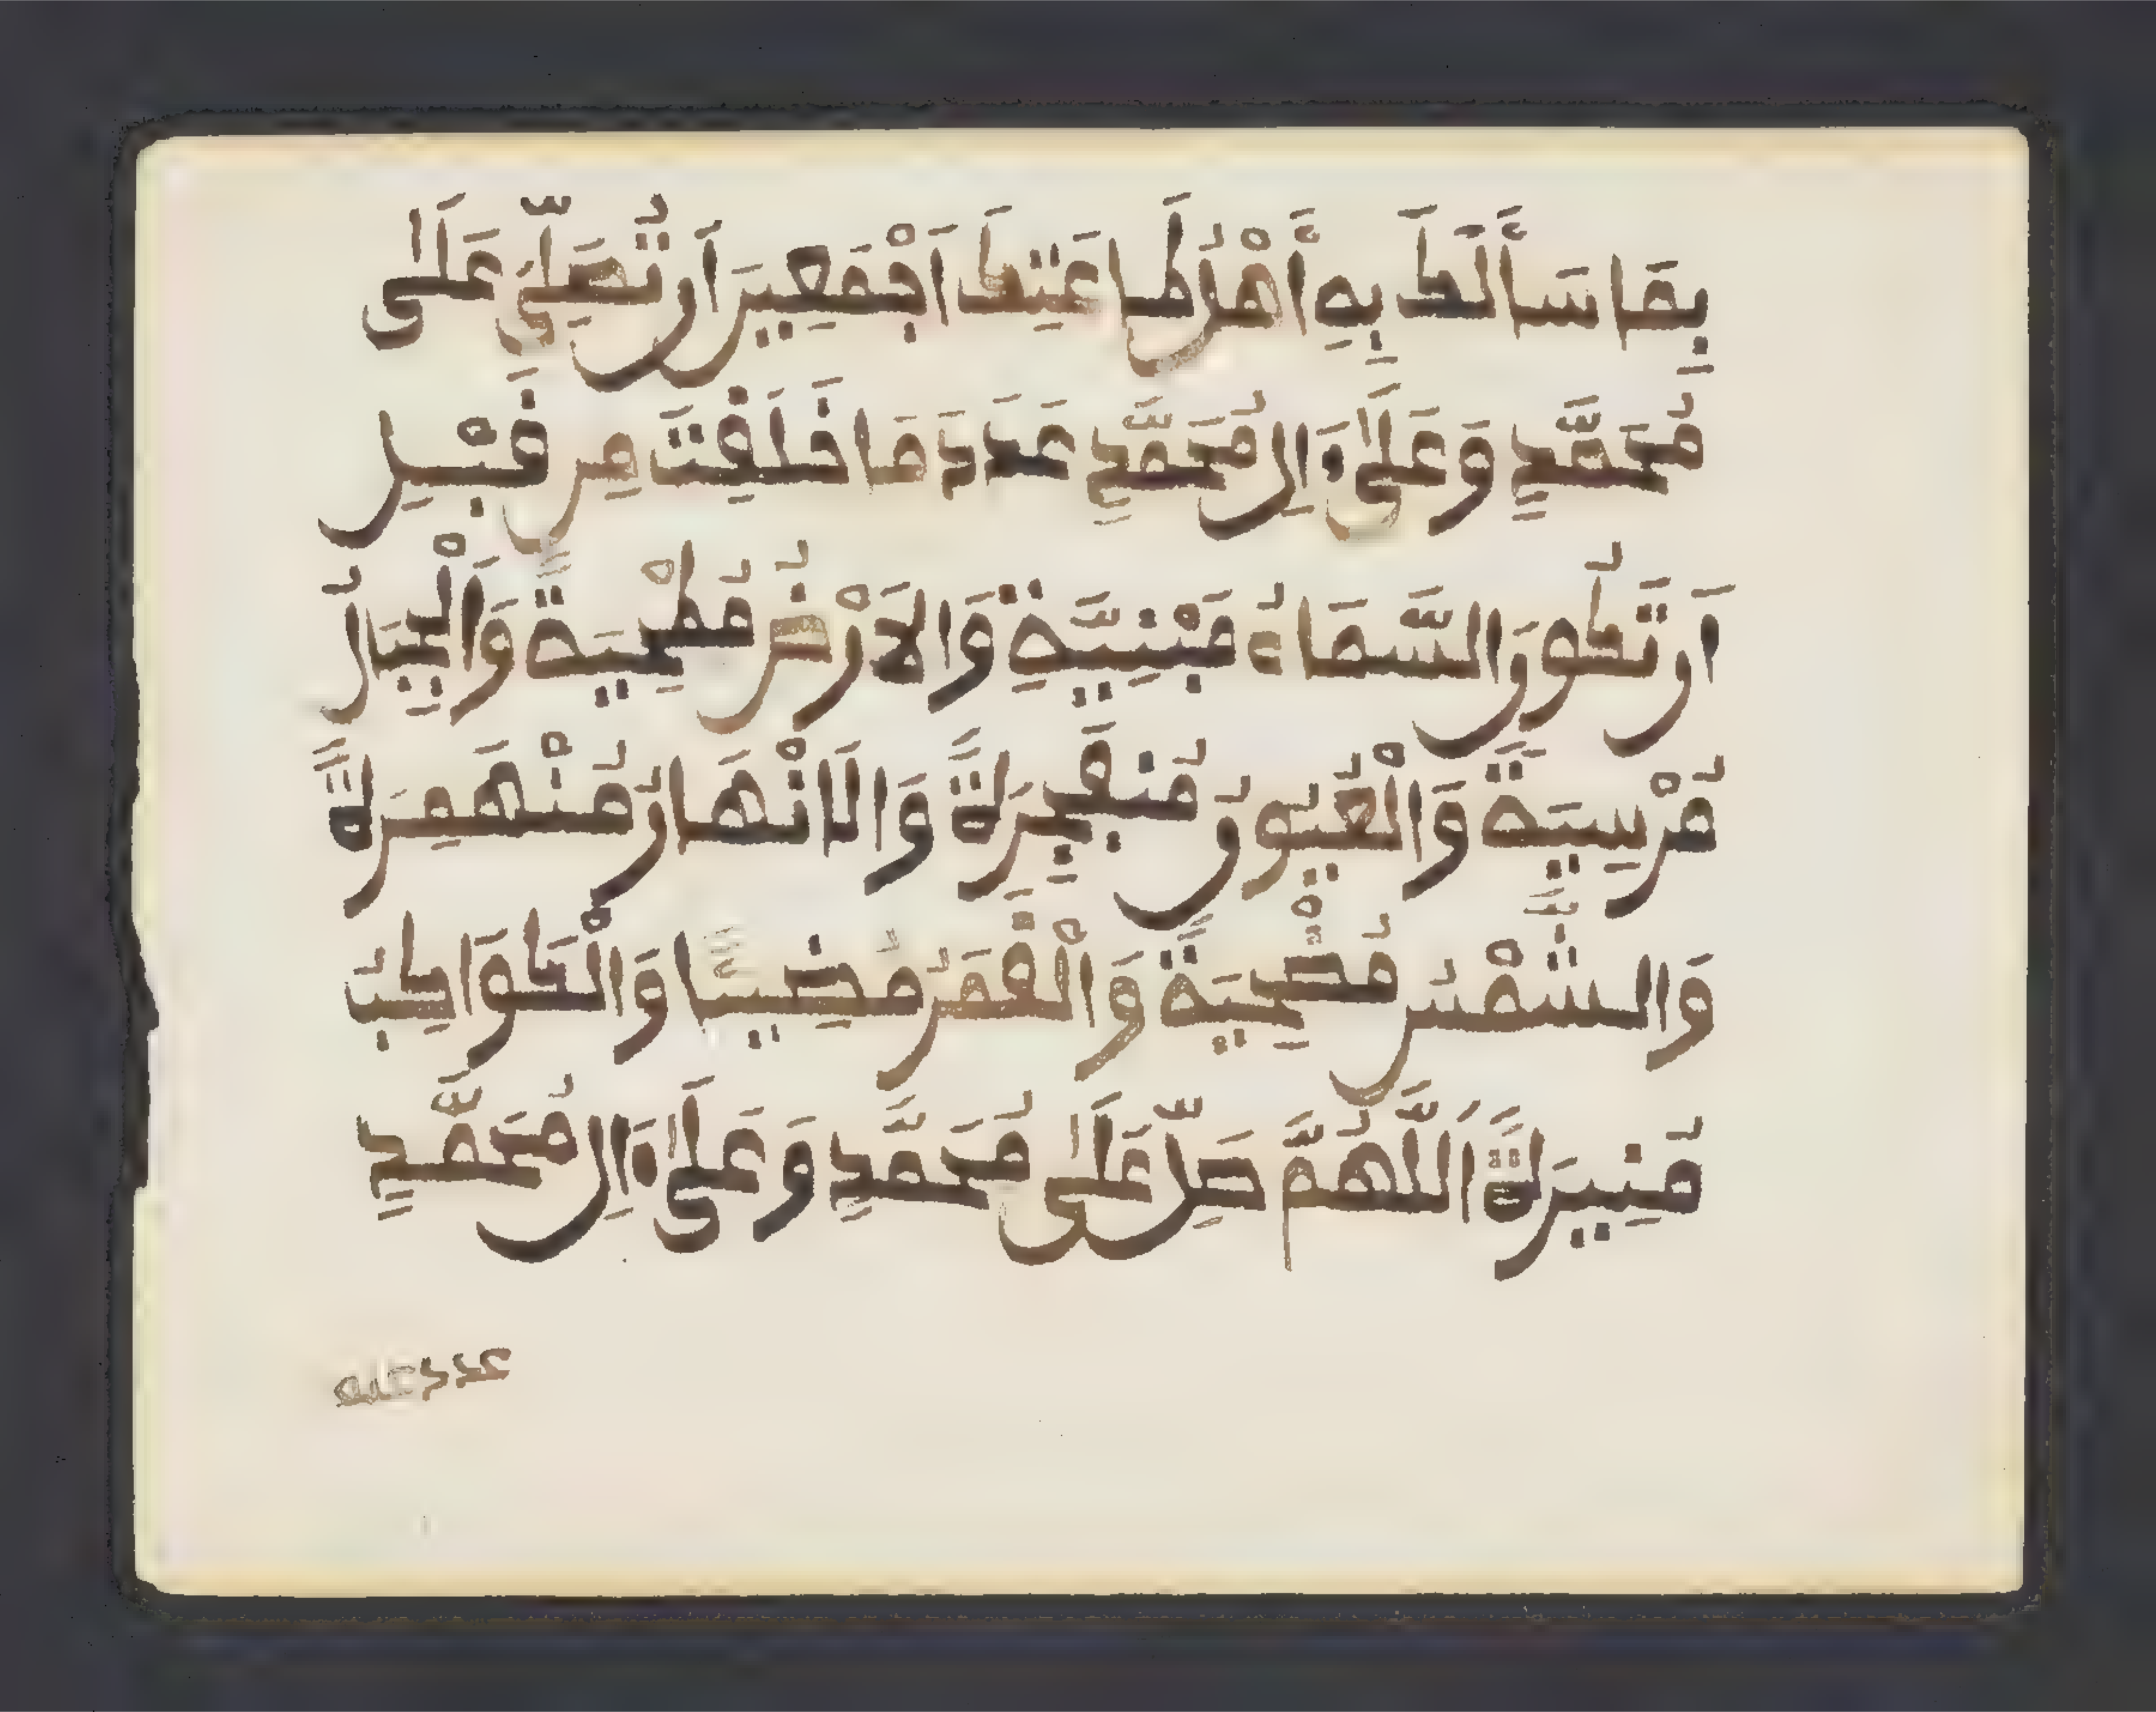 بِمَا سَأَلَكَ بِهِ أَهْلُ طَاعَتِكَ أَجْمَعِينَ أَن تُصَلِّيَ عَلَىٰ
مُحَمَّدٍ وَعَلَىٰ ءَالِ مُحَمَّدٍ عَدَدَ مَا خَلَقْتَ مِن قَبْلِ
أَن تَكُونَ السَّمَاءُ مَبْنِيَّةً وَالاَرْضُ مَطْحِيَةً وَالْجِبَالُ
مُرْسِيَةً وَالْعُيُونُ مُنفَجِرَةً وَالَانْهَارُ مُنْهَمِرَةً
وَالشَّمْسُ مُضْحِيَةً وَالْقَمَرُ مُضِيئًا وَالْكَوَاكِبُ
مُنِيرَةً اَللَّهُمَّ صَلِّ عَلَىٰ مُحَمَّدٍ وَعَلَىٰ ءَالِ مُحَمَّدٍ
عدد علمه